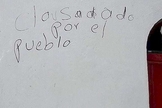 clausurado
por el
pueblo